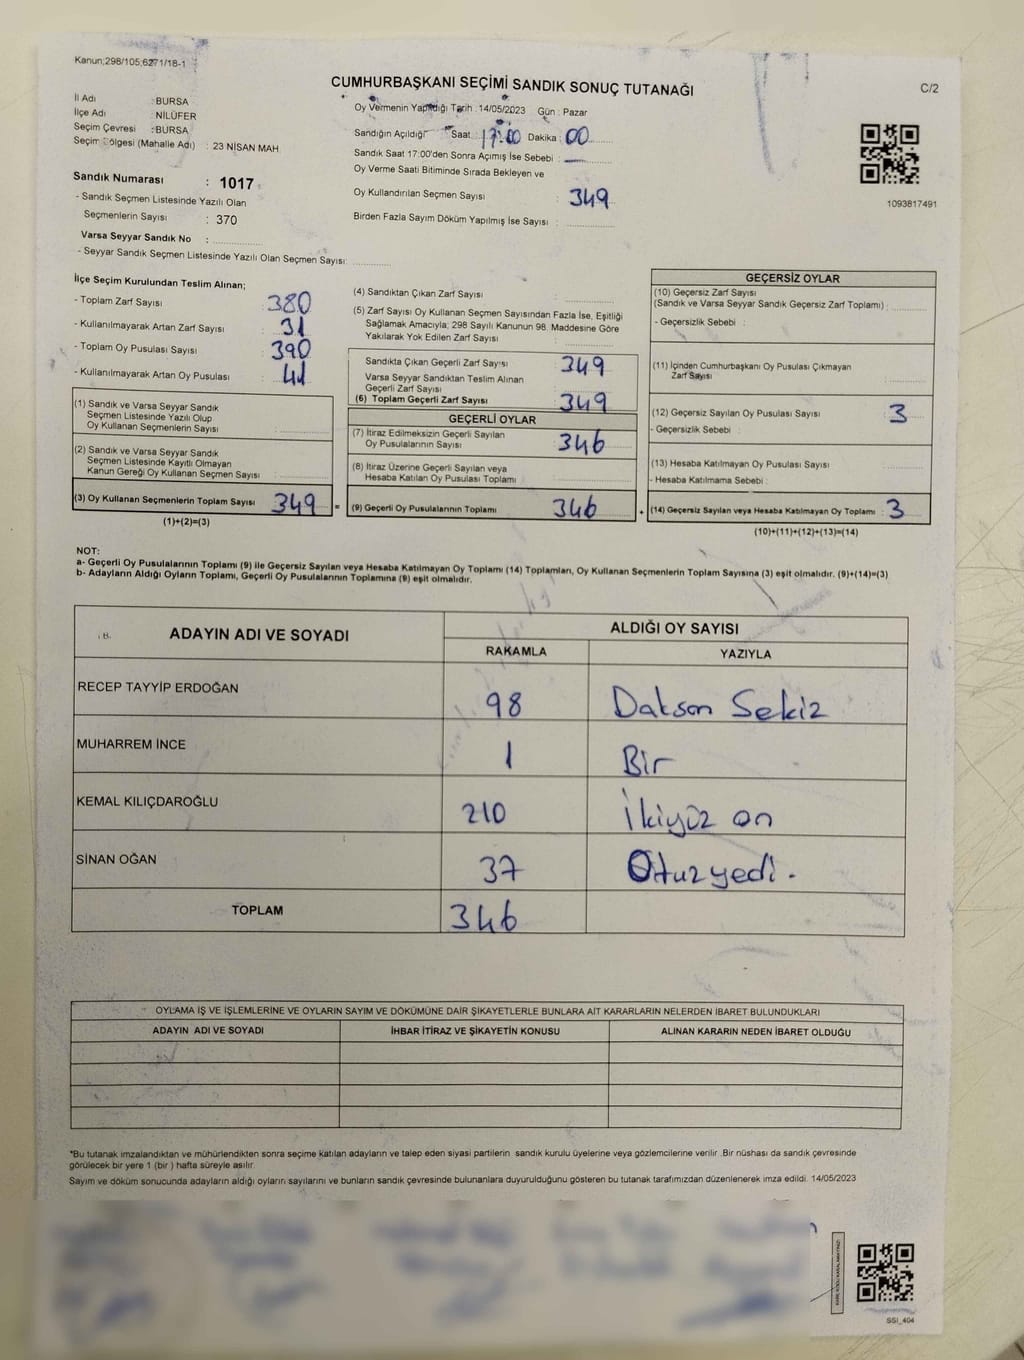 Kanun;298/105;6271/18-1
CUMHURBAŞKANI SEÇİMİ SANDIK SONUÇ TUTANAĞI
C/2
İl Adı : BURSA
İlçe Adı : NİLÜFER
Seçim Çevresi : BURSA
Seçim Bölgesi (Mahalle Adı) : 23 NİSAN MAH.
Sandık Numarası : 1017
- Sandık Seçmen Listesinde Yazılı Olan
Seçmenlerin Sayısı : 370
Varsa Seyyar Sandık No :
- Seyyar Sandık Seçmen Listesinde Yazılı Olan Seçmen Sayısı:
Oy Vermenin Yapıldığı Tarih : 14/05/2023 Gün : Pazar
Sandığın Açıldığı Saat : 17:00 Dakika : 00
Sandık Saat 17:00'den Sonra Açımış İse Sebebi :
Oy Verme Saati Bitiminde Sırada Bekleyen ve
Oy Kullandırılan Seçmen Sayısı : 349
Birden Fazla Sayım Döküm Yapılmış İse Sayısı :
1093817491
İlçe Seçim Kurulundan Teslim Alınan;
- Toplam Zarf Sayısı : 380
- Kullanılmayarak Artan Zarf Sayısı : 31
- Toplam Oy Pusulası Sayısı : 390
- Kullanılmayarak Artan Oy Pusulası : 41
(1) Sandık ve Varsa Seyyar Sandık
Seçmen Listesinde Yazılı Olup
Oy Kullanan Seçmenlerin Sayısı :
(2) Sandık ve Varsa Seyyar Sandık
Seçmen Listesinde Kayıtlı Olmayan
Kanun Gereği Oy Kullanan Seçmen Sayısı :
(3) Oy Kullanan Seçmenlerin Toplam Sayısı : 349 =
(1)+(2)=(3)
(4) Sandıktan Çıkan Zarf Sayısı :
(5) Zarf Sayısı Oy Kullanan Seçmen Sayısından Fazla İse, Eşitliği
Sağlamak Amacıyla; 298 Sayılı Kanunun 98. Maddesine Göre
Yakılarak Yok Edilen Zarf Sayısı :
Sandıkta Çıkan Geçerli Zarf Sayısı : 349
Varsa Seyyar Sandıktan Teslim Alınan
Geçerli Zarf Sayısı :
(6) Toplam Geçerli Zarf Sayısı : 349
GEÇERLİ OYLAR
(7) İtiraz Edilmeksizin Geçerli Sayılan
Oy Pusulalarının Sayısı : 346
(8) İtiraz Üzerine Geçerli Sayılan veya
Hesaba Katılan Oy Pusulası Toplamı :
(9) Geçerli Oy Pusulalarının Toplamı : 346 +
GEÇERSİZ OYLAR
(10) Geçersiz Zarf Sayısı
(Sandık ve Varsa Seyyar Sandık Geçersiz Zarf Toplamı) :
- Geçersizlik Sebebi :
(11) İçinden Cumhurbaşkanı Oy Pusulası Çıkmayan
Zarf Sayısı :
(12) Geçersiz Sayılan Oy Pusulası Sayısı : 3
- Geçersizlik Sebebi :
(13) Hesaba Katılmayan Oy Pusulası Sayısı :
- Hesaba Katılmama Sebebi :
(14) Geçersiz Sayılan veya Hesaba Katılmayan Oy Toplamı : 3
(10)+(11)+(12)+(13)=(14)
NOT:
a- Geçerli Oy Pusulalarının Toplamı (9) ile Geçersiz Sayılan veya Hesaba Katılmayan Oy Toplamı (14) Toplamları, Oy Kullanan Seçmenlerin Toplam Sayısına (3) eşit olmalıdır. (9)+(14)=(3)
b- Adayların Aldığı Oyların Toplamı, Geçerli Oy Pusulalarının Toplamına (9) eşit olmalıdır.
ADAYIN ADI VE SOYADI ALDIĞI OY SAYISI
RAKAMLA YAZIYLA
RECEP TAYYİP ERDOĞAN 98 Datson Sekiz
MUHARREM İNCE 1 Bir
KEMAL KILIÇDAROĞLU 210 İkiyüz on
SİNAN OĞAN 37 Otuzyedi.
TOPLAM 346
OYLAMA İŞ VE İŞLEMLERİNE VE OYLARIN SAYIM VE DÖKÜMÜNE DAİR ŞİKAYETLERLE BUNLARA AİT KARARLARIN NELERDEN İBARET BULUNDUKLARI
ADAYIN ADI VE SOYADI İHBAR İTİRAZ VE ŞİKAYETİN KONUSU ALINAN KARARIN NEDEN İBARET OLDUĞU
*Bu tutanak imzalandıktan ve mühürlendikten sonra seçime katılan adayların ve talep eden siyasi partilerin sandık kurulu üyelerine veya gözlemcilerine verilir. Bir nüshası da sandık çevresinde
görülecek bir yere 1 (bir) hafta süreyle asılır.
Sayım ve döküm sonucunda adayların aldığı oyların sayılarını ve bunların sandık çevresinde bulunanlara duyurulduğunu gösteren bu tutanak tarafımızdan düzenlenerek imza edildi. 14/05/2023
SSI_404